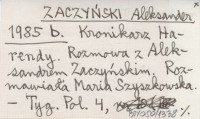 ZACZYŃSKI Aleksander
1985 b. Kronikarz Ha-
rendy. Rozmowa z Alek-
sandrem Zaczyńskim. Roz-
mawiała Maria Szyszkowska.
– Tyg. Pol. 4,